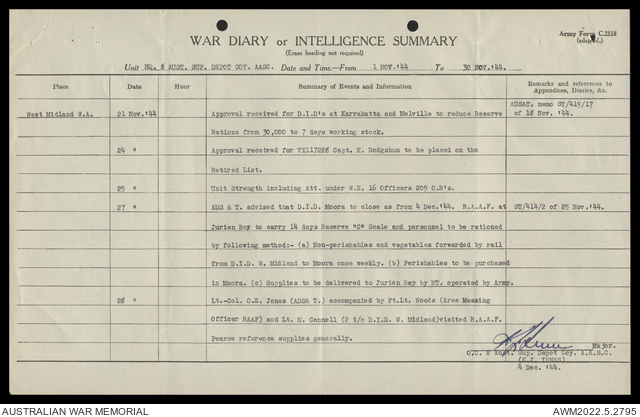 Army Form C.2118
(adapted.)
WAR DIARY or INTELLIGENCE SUMMARY
(Erase heading not required)
Unit HQ. 8 AUST. SUP. DEPOT COY. AASC. Date and Time.—From 1 NOV.'44 To 30 NOV.'44.
Place Date Hour Summary of Events and Information Remarks and references to Appendices, Diaries, &c.
West Midland W.A. 21 Nov.'44 Approval received for D.I.D's at Karrakatta and Melville to reduce Reserve ADS&T. memo ST/419/17
of 18 Nov. '44.
Rations from 30,000 to 7 days working stock.
24 " Approval received for VX117228 Capt. K. Dodgshun to be placed on the
Retired List.
25 " Unit Strength including Att. under W.E. 16 Officers 209 O.R's.
27 " ADS & T. advised that D.I.D. Moora to close as from 4 Dec.'44. R.A.A.F. at ST/414/2 of 25 Nov.'44.
Jurien Bay to carry 14 days Reserve "C" Scale and personnel to be rationed
by following method:- (a) Non-perishables and vegetables forwarded by rail
from D.I.D. W. Midland to Moora once weekly. (b) Perishables to be purchased
in Moora. (c) Supplies to be delivered to Jurien Bay by MT. operated by Army.
28 " Lt.-Col. C.E. Jones (ADS& T.) accompanied by Ft.Lt. Woods (Area Messing
Officer RAAF) and Lt. N. Connell (2 i/c D.I.D. W. Midland)visited R.A.A.F.
Pearce reference supplies generally.
Major.
O.C. 8 Aust. Sup. Depot Coy. A.A.S.C.
4 Dec. '44.
AUSTRALIAN WAR MEMORIAL
AWM2022.5.2795